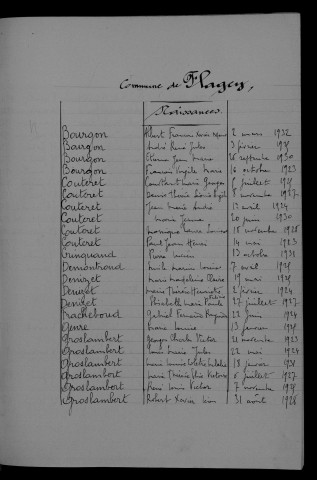 Commune de Flagey,
Naissances.
Bourgon Albert François Xavier 2 mars 1932
Bourgon André René Jules 3 février
Bourgon Etienne Jean Marie 26 septembre 1930
Bourgon François Virgile Marie 16 octobre 1923
Couteret Constant Marie Georges 6 juillet
Coutéret Denise Marie Louise 8 novembre 1927
Couteret Jean Marie André 13 avril 1924
Couteret Marie Jeanne 20 juin 1930
Coutéret Monique Louise 18 novembre 1928
Couteret Paul Jean Henri 14 mai 1923
Cuinquand Pierre Lucien 13 octobre 1931
Demontrond Marie Louise 7 avril
Denizet Marie Madeleine Claire 19 mai
Denizet Marie Thérèse Henriette 2 février 1924
Denizet Elisabeth Marie Paule 27 juillet 1927
Gacheboud Gabriel 22 Juin 1924
Genre Louise 13 février
Groslambert Georges Charles Victor 21 novembre 1923
Groslambert Louis Marie Jules 22 mai 1924
Groslambert Marie 18 janvier
Groslambert Marie Thérèse 6 juillet 1927
Groslambert René Louis Victor 7 novembre
Groslambert Robert Xavier Léon 31 août 1926